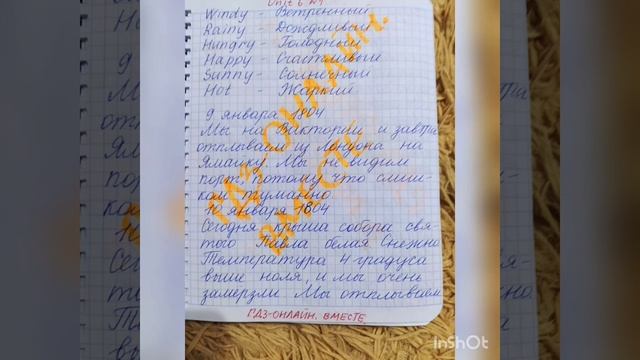 Unit 6 №4
Windy - Ветренный
Rainy - Дождливый
Hungry - Голодный
Happy - Счастливый
Sunny - Солнечный
Hot - Жаркий
9 января 1804
Мы на Виктории и завтра
отплываем из Лондона на
Ямайку. Мы не видим
порт, потому что слиш-
ком туманно.
10 января 1804
Сегодня крыша собора свя-
того Павла белая Снежно
Температура 4 градуса
выше ноля, и мы очень
замерзли Мы отплываем
ГДЗ-ОНЛАЙН.
ВМЕСТЕ
ГДЗ-ОНЛАЙН. ВМЕСТЕ.
InShOt